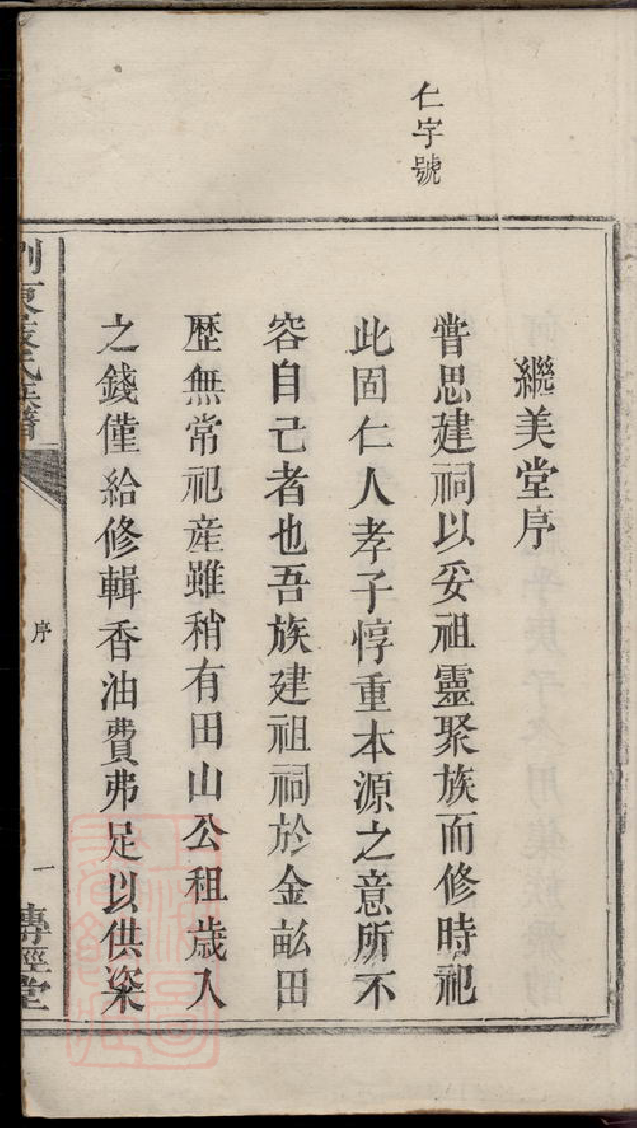 仁字號
繼美堂序
嘗思建祠以妥祖靈聚族而修時祀
此固仁人孝子惇重本源之意所不
容自己者也吾族建祖祠於金畆田
歷無常祀產雖稍有田山公租歲入
之錢僅給修輯香油費弗足以供粢
東 氏族譜
序
一
傳經堂